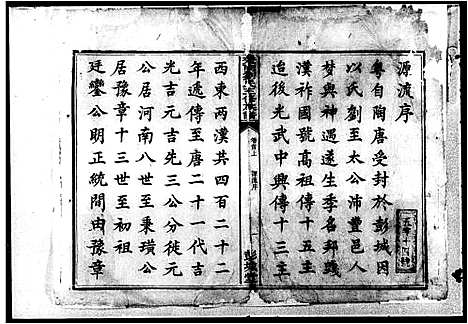 源流序
粵自陶唐受封於彭城因
以氏劉至太公沛豐邑人
夢與神遇遂生季名邦踐
漢祚國號高祖傳十五主
迨後光武中興傳十三主
卷首上 源流序 一
西東兩漢共四百二十二
年遞傳至唐二十一代吉
光吉元吉先三公分徙元
公居河南八世至秉璜公
居豫章十三世至初祖
廷鑾公明正統間由豫章